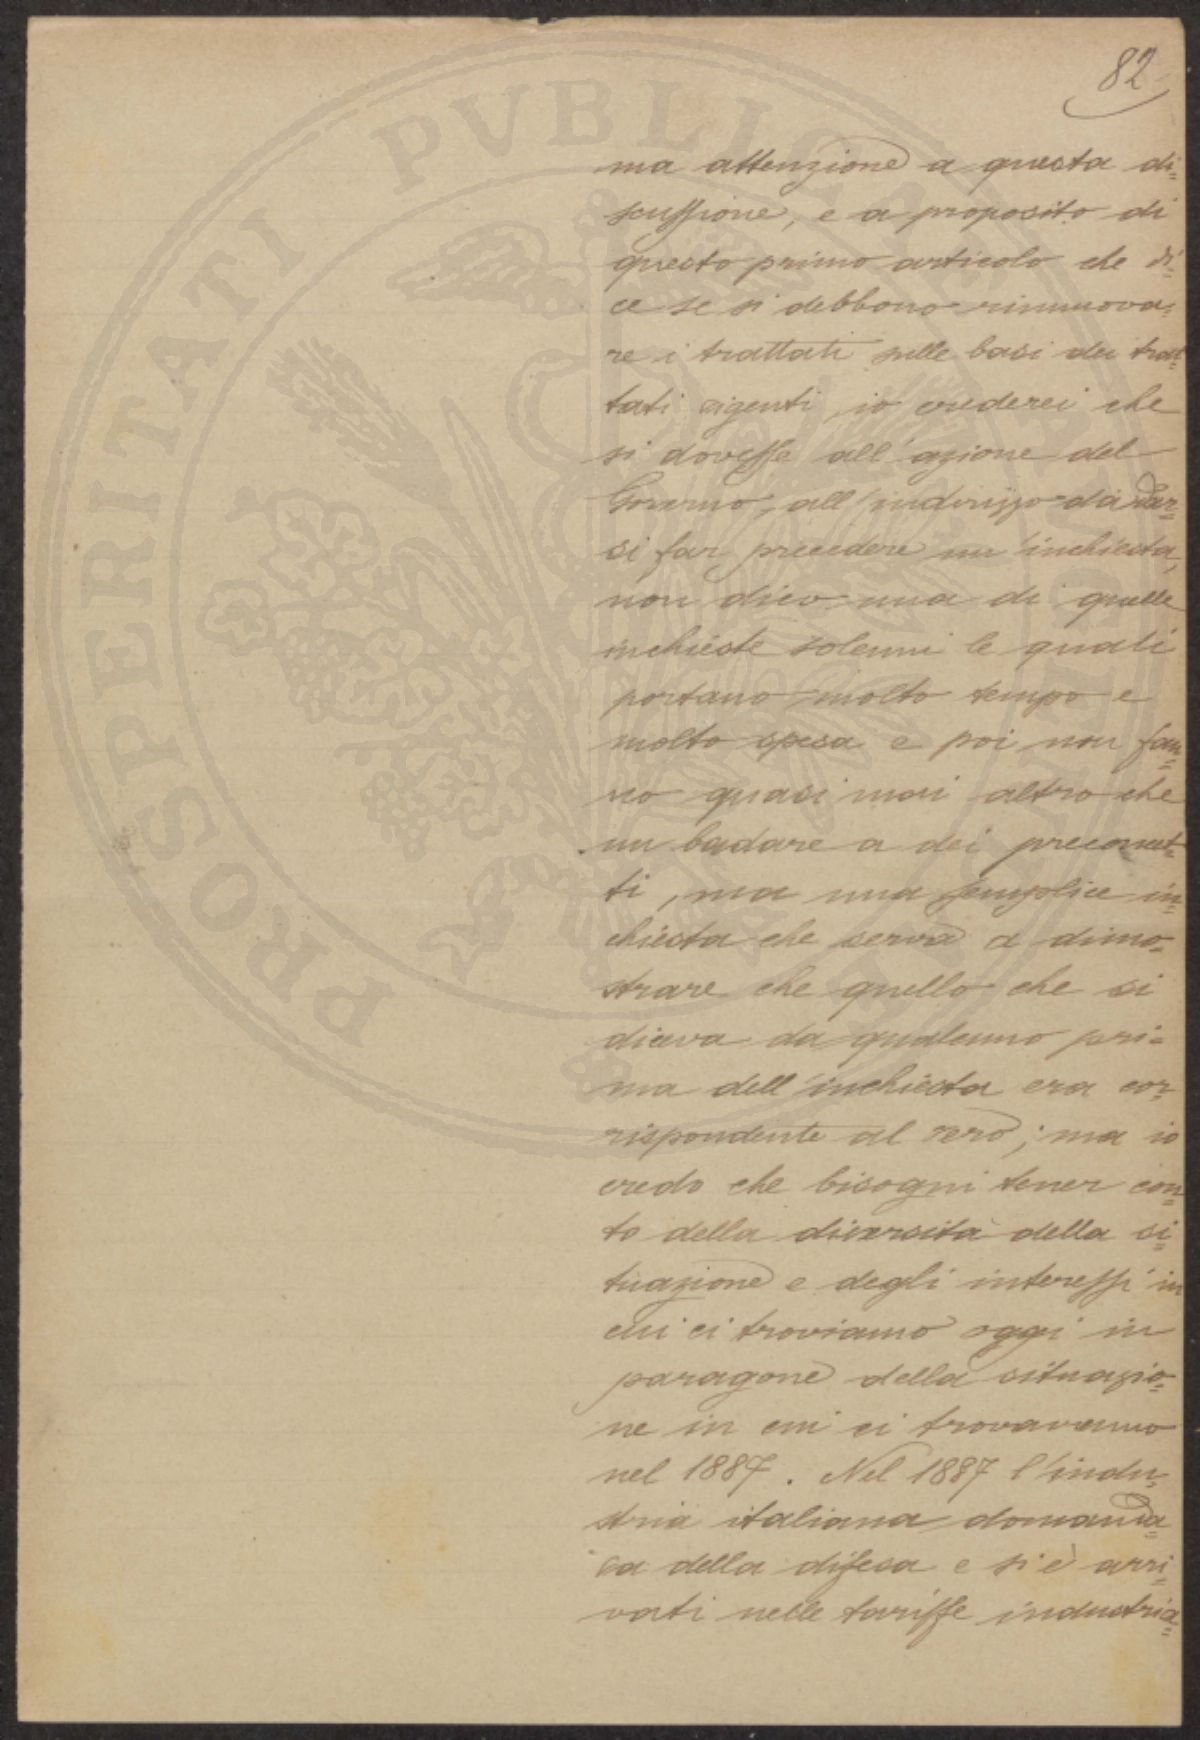 82
PROSPERITATI PVBLICAE
ma attenzione a questa di=
scussione, e a proposito di
questo primo articolo che di=
ce se si debbono rinnuova=
re i trattati sulle basi dei trat=
tati vigenti io crederei che
si dovesse all'azione del
Governo, all'indirizzo da dar=
si far precedere un'inchiesta,
non dico una di quelle
inchieste solenni le quali
portano molto tempo e
molto spesa e poi non fan=
no quasi mai altro che
un badare a dei preconcet=
ti, ma una semplice in=
chiesta che serva a dimo=
strare che quello che si
diceva da qualcuno pri=
ma dell'inchiesta era cor=
rispondente al vero; ma io
credo che bisogni tener con=
to della diversità della si=
tuazione e degli interessi in
cui ci troviamo oggi in
paragone della situazio=
ne in cui ci trovavamo
nel 1887. Nel 1887 l'indu=
stria italiana domanda=
va della difesa e si è arri=
vati nelle tariffe industria=